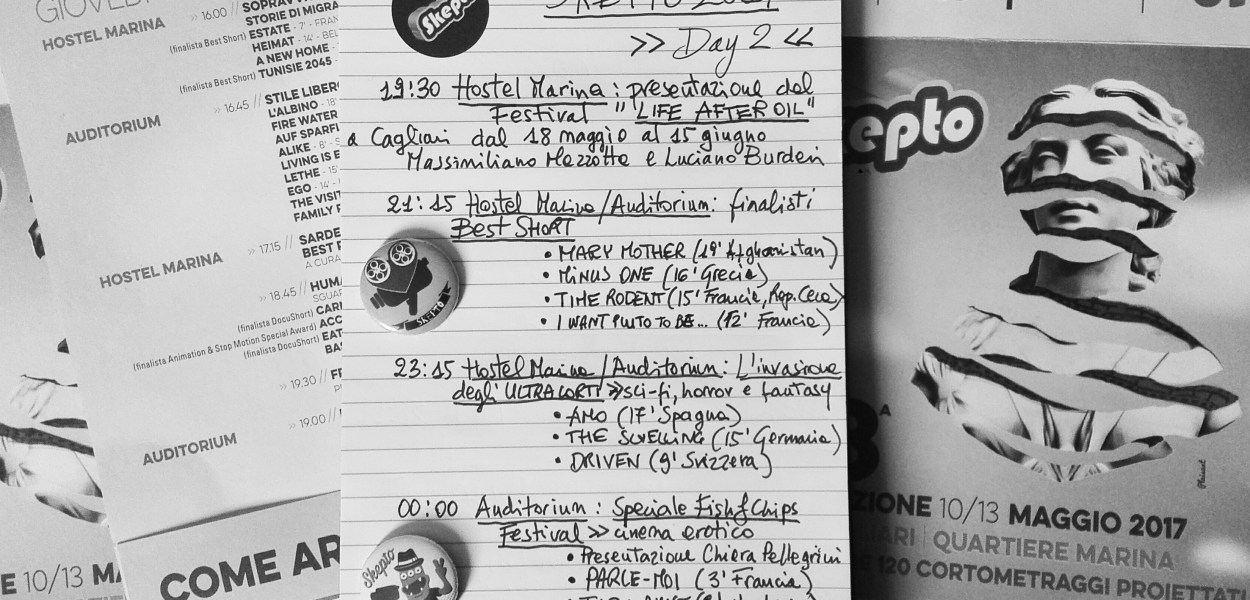 GIOVEDÌ
HOSTEL MARINA
» 16.00 //
STORIE DI MIGRA
(finalista Best Short) ESTATE - 7' - FRAN
HEIMAT - 14' - BEL
A NEW HOME -
(finalista Best Short) TUNISIE 2045 -
AUDITORIUM
» 16.45 // STILE LIBER
L'ALBINO - 18'
FIRE WATER
AUF SPARFL
ALIKE - 8' - S
LIVING IS E
LETHE - 15'
EGO - 14' -
THE VISIT
FAMILY F
HOSTEL MARINA
» 17.15 // SARDE
BEST F
A CURA
» 18.45 // HUM
SGUAR
(finalista DocuShort) CARI
(finalista Animation & Stop Motion Special Award) ACC
(finalista DocuShort) EAT
BA
» 19.30 //
» 19.00 //
AUDITORIUM
E 10/13 MA
COME AR
Skepto
>> Day 2 <<
19:30 Hostel Marina : presentazione del
Festival "LIFE AFTER OIL"
a Cagliari dal 18 maggio al 15 giugno
Massimiliano Mazzotta e Luciano Burderi
21:15 Hostel Marina/Auditorium: finalisti
Best SHORT
• MARY MOTHER (19' Afghanistan)
• MINUS ONE (16' Grecia)
• TIME RODENT (15' Francia, Rep. Ceca)
• I WANT PLUTO TO BE... (12' Francia)
Skepto
23:15 Hostel Marina/Auditorium: L'invasione
degli ULTRACORTI >> sci-fi, horror e fantasy
• AMO (17' Spagna)
• THE SWELLING (15' Germania)
• DRIVEN (9' Svizzera)
00:00 Auditorium : Speciale Fish&Chips
Festival >> cinema erotico
• Presentazione Chiara Pellegrini
• PARLE-MOI (3' Francia)
Skepto
epto
8ª
ZIONE 10/13 MAGGIO 2017
ARI | QUARTIERE MARINA
E 120 CORTOMETRAGGI PROIETTATI